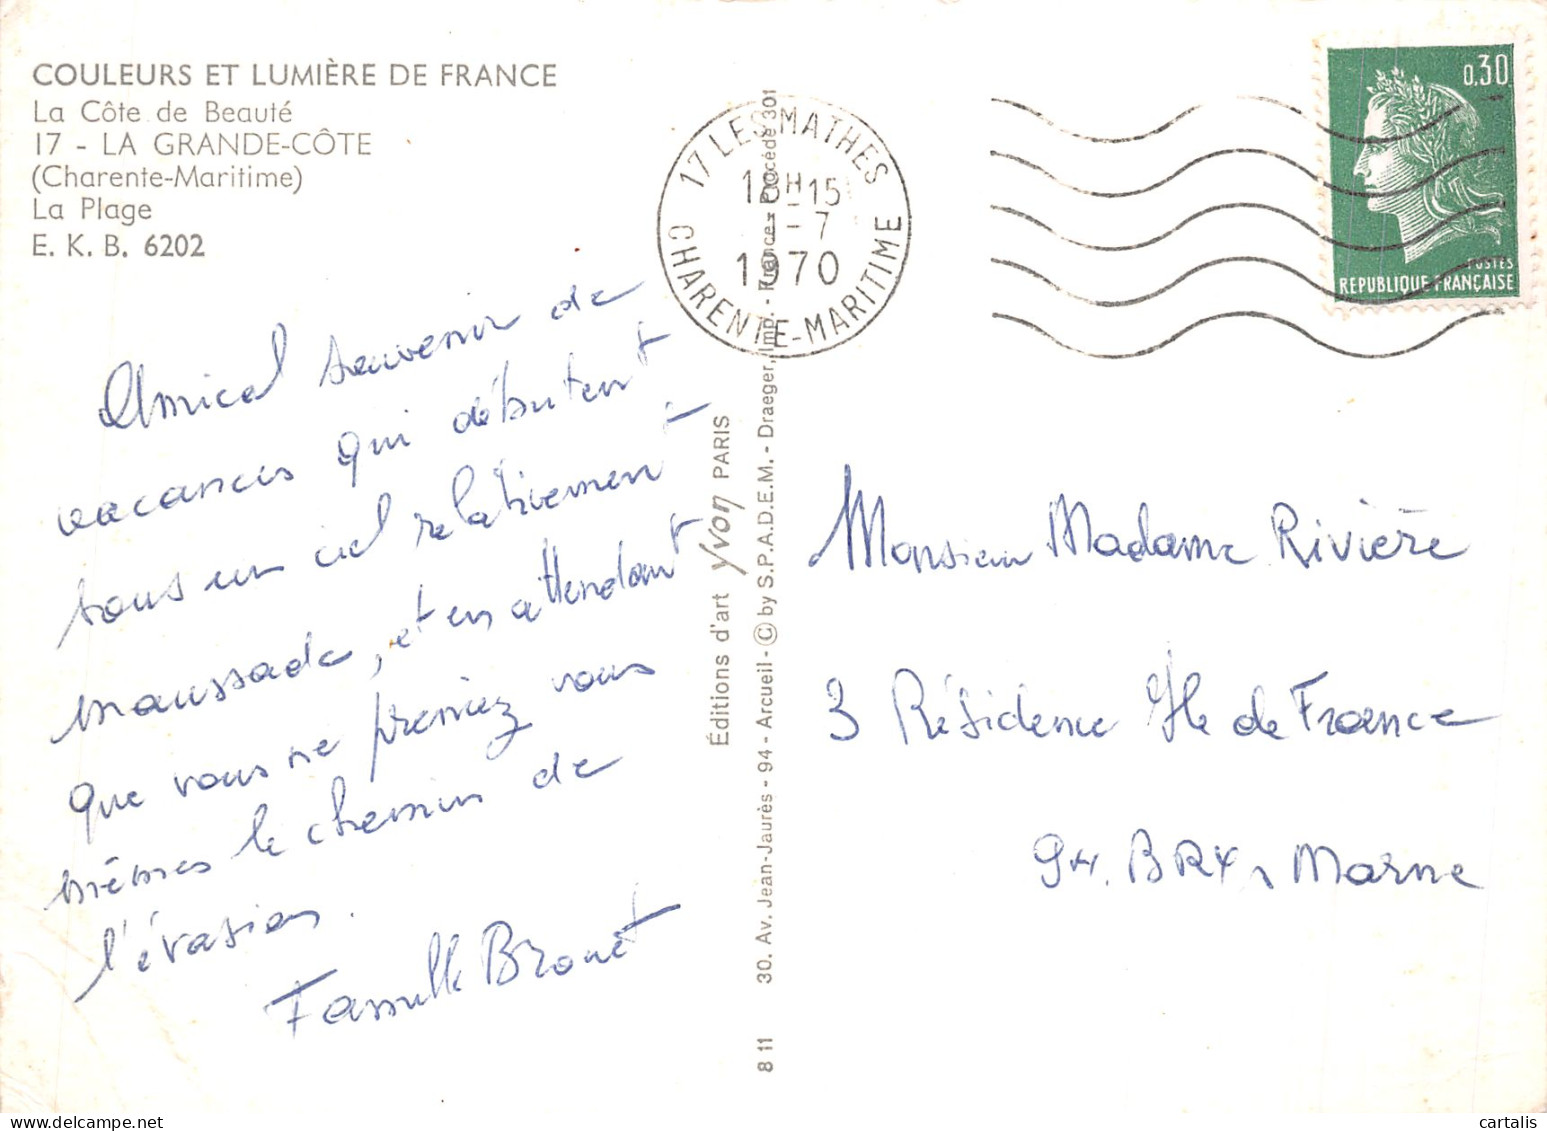 COULEURS ET LUMIÈRE DE FRANCE
La Côte de Beauté
17 - LA GRANDE-CÔTE
(Charente-Maritime)
La Plage
E. K. B. 6202
Amical souvenir de
vacances qui débutent
sous un ciel relativement
maussade, et en attendant
que vous ne preniez vous
mêmes le chemin de
l'évasion.
Famille Brouet
17 LES MATHES
18H-15
1-7
1970
CHARENTE-MARITIME
0,30
POSTES
REPUBLIQUE FRANÇAISE
Éditions d'art Yvon PARIS
30. Av. Jean-Jaurès - 94 - Arcueil - © by S.P.A.D.E.M. - Draeger, Imp. - France - Procédé 301
8 11
Monsieur Madame Rivière
3 Résidence Ile de France
94. BRY s Marne
cartalis